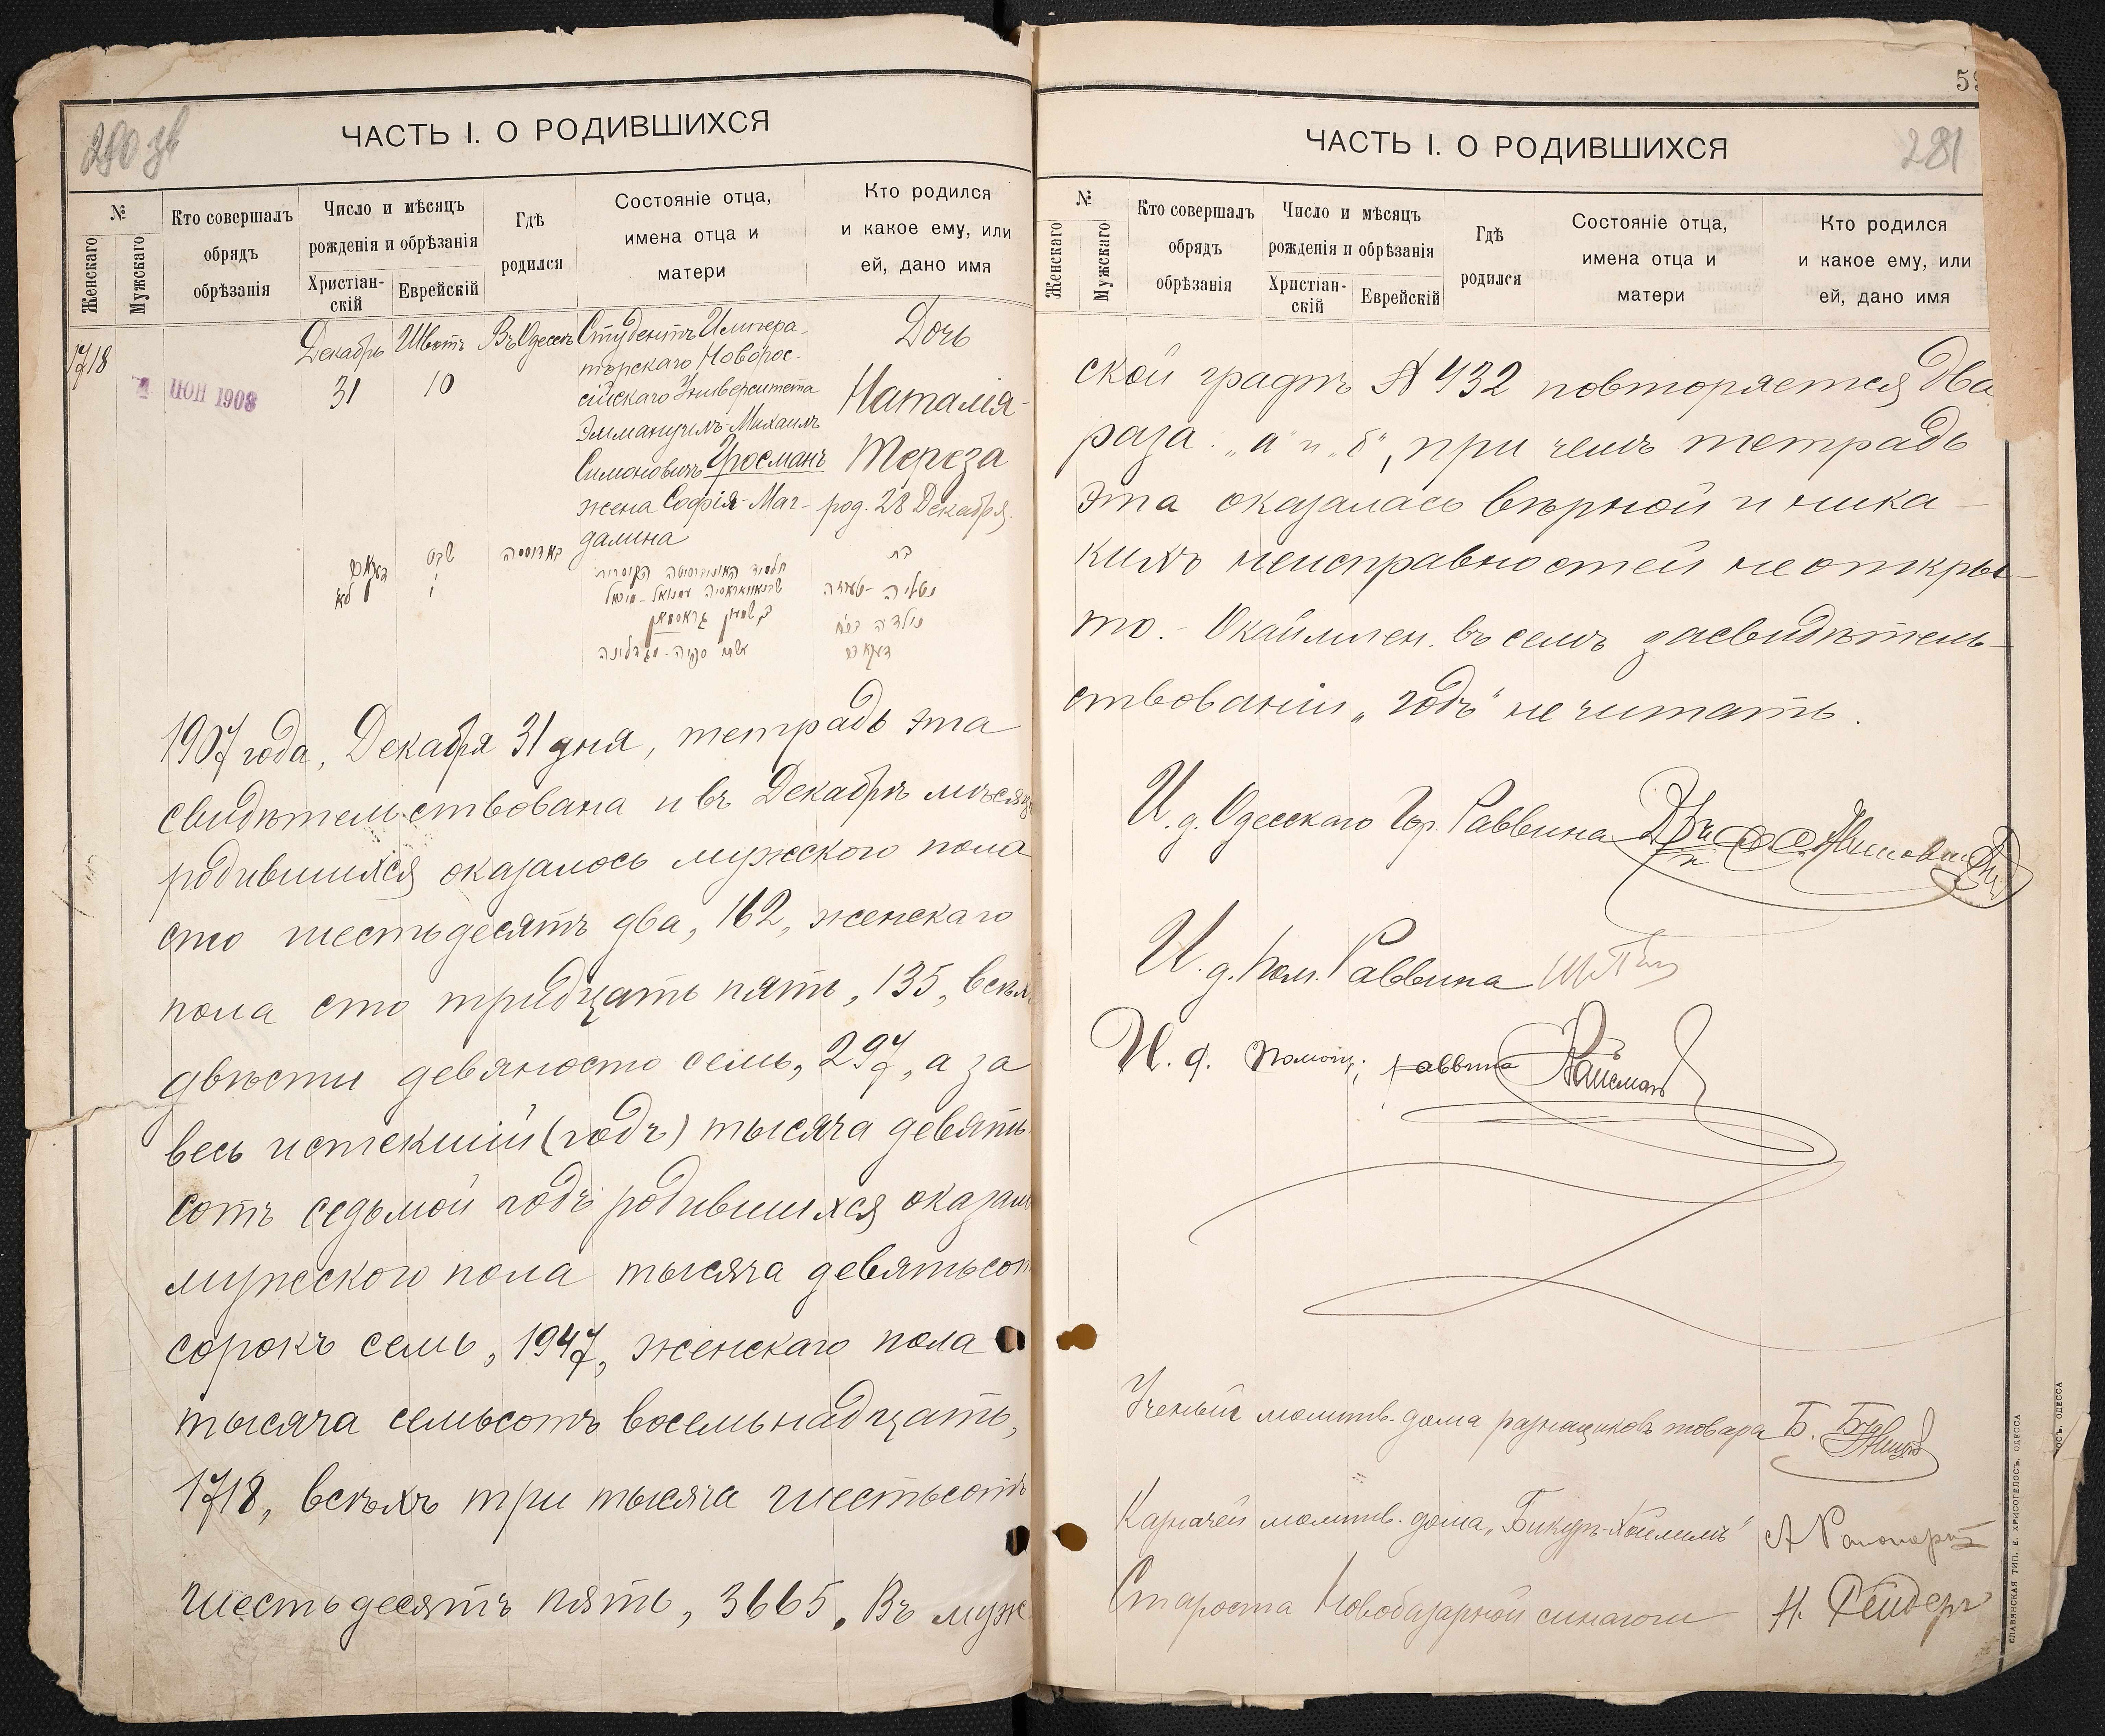 280 зв
ЧАСТЬ I. О РОДИВШИХСЯ
№
Женскаго
Мужскаго
Кто совершалъ
обрядъ
обрѣзанія
Число и мѣсяцъ
рожденія и обрѣзанія
Христіан-
скій
Еврейскій
Гдѣ
родился
Состояніе отца,
имена отца и
матери
Кто родился
и какое ему, или
ей, дано имя
1718
4 ІЮН 1908
Декабрь
31
Шватъ
10
Въ Одессѣ
Студентъ Импера-
торскаго Новорос-
сійскаго Университета
Эммануилъ-Михаилъ
Симоновичъ Гросманъ
жена Софія-Маг-
далина
Дочь
Наталія-
Тереза
род. 28 Декабря.
דעקאב
לא
שבט
י
באדעסה
בת
נולדה
דעקאב
1907 года, Декабря 31 дня, тетрадь эта
свидѣтельствована и въ Декабрѣ мѣсяцѣ
родившихся оказалось мужского пола
сто шестьдесятъ два, 162, женскаго
пола сто тридцать пять, 135, всѣхъ
двѣсти девяносто семь, 297, а за
весь истекшій (годъ) тысяча девять-
сотъ седьмой годъ родившихся оказал
мужеского пола тысяча девятьсот
сорокъ семь, 1947, женскаго пола
тысяча семьсотъ восемьнадцать,
1718, всѣхъ три тысяча шестьсотъ
шестьдесятъ пять, 3665. Въ муж
281
ЧАСТЬ I. О РОДИВШИХСЯ
№
Женскаго
Мужскаго
Кто совершалъ
обрядъ
обрѣзанія
Число и мѣсяцъ
рожденія и обрѣзанія
Христіан-
скій
Еврейскій
Гдѣ
родился
Состояніе отца,
имена отца и
матери
Кто родился
и какое ему, или
ей, дано имя
ской графѣ № 432 повторяется два
раза: „а" и „б", при чемъ тетрадь
эта оказалась вѣрной и ника-
кихъ неисправностей не откры-
то. - Окаймлен. въ семъ засвидѣтель-
ствованіи „годъ" не читать.
И. д. Одесскаго Гор. Раввина
И. д. Пом. Раввина
И. д. Помощ. раввина
Ученый молитв. дома разнащиковъ товара Б.
Казначей молитв. дома „Бикуръ-Хойлимъ" А Рапопортъ
Староста Новобазарной синагоги Н.
СЛАВЯНСКАЯ ТИП. Е. ХРИСОГЕЛОСЪ, ОДЕССА